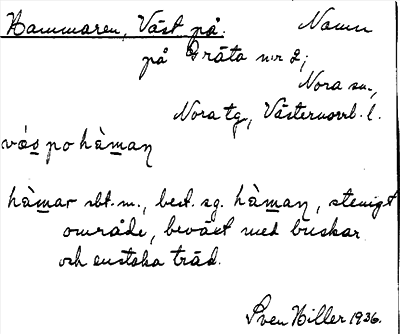 Hammaren, Väst på. Namn
på Gräta nr 2;
Nora sn.,
Nora tg, Västernorrl. l.
vás po hàman
hàmar sbt. m., best. sg. hàman, stenigt
område, beväxt med buskar
och enstaka träd.
Sven Hiller 1936.